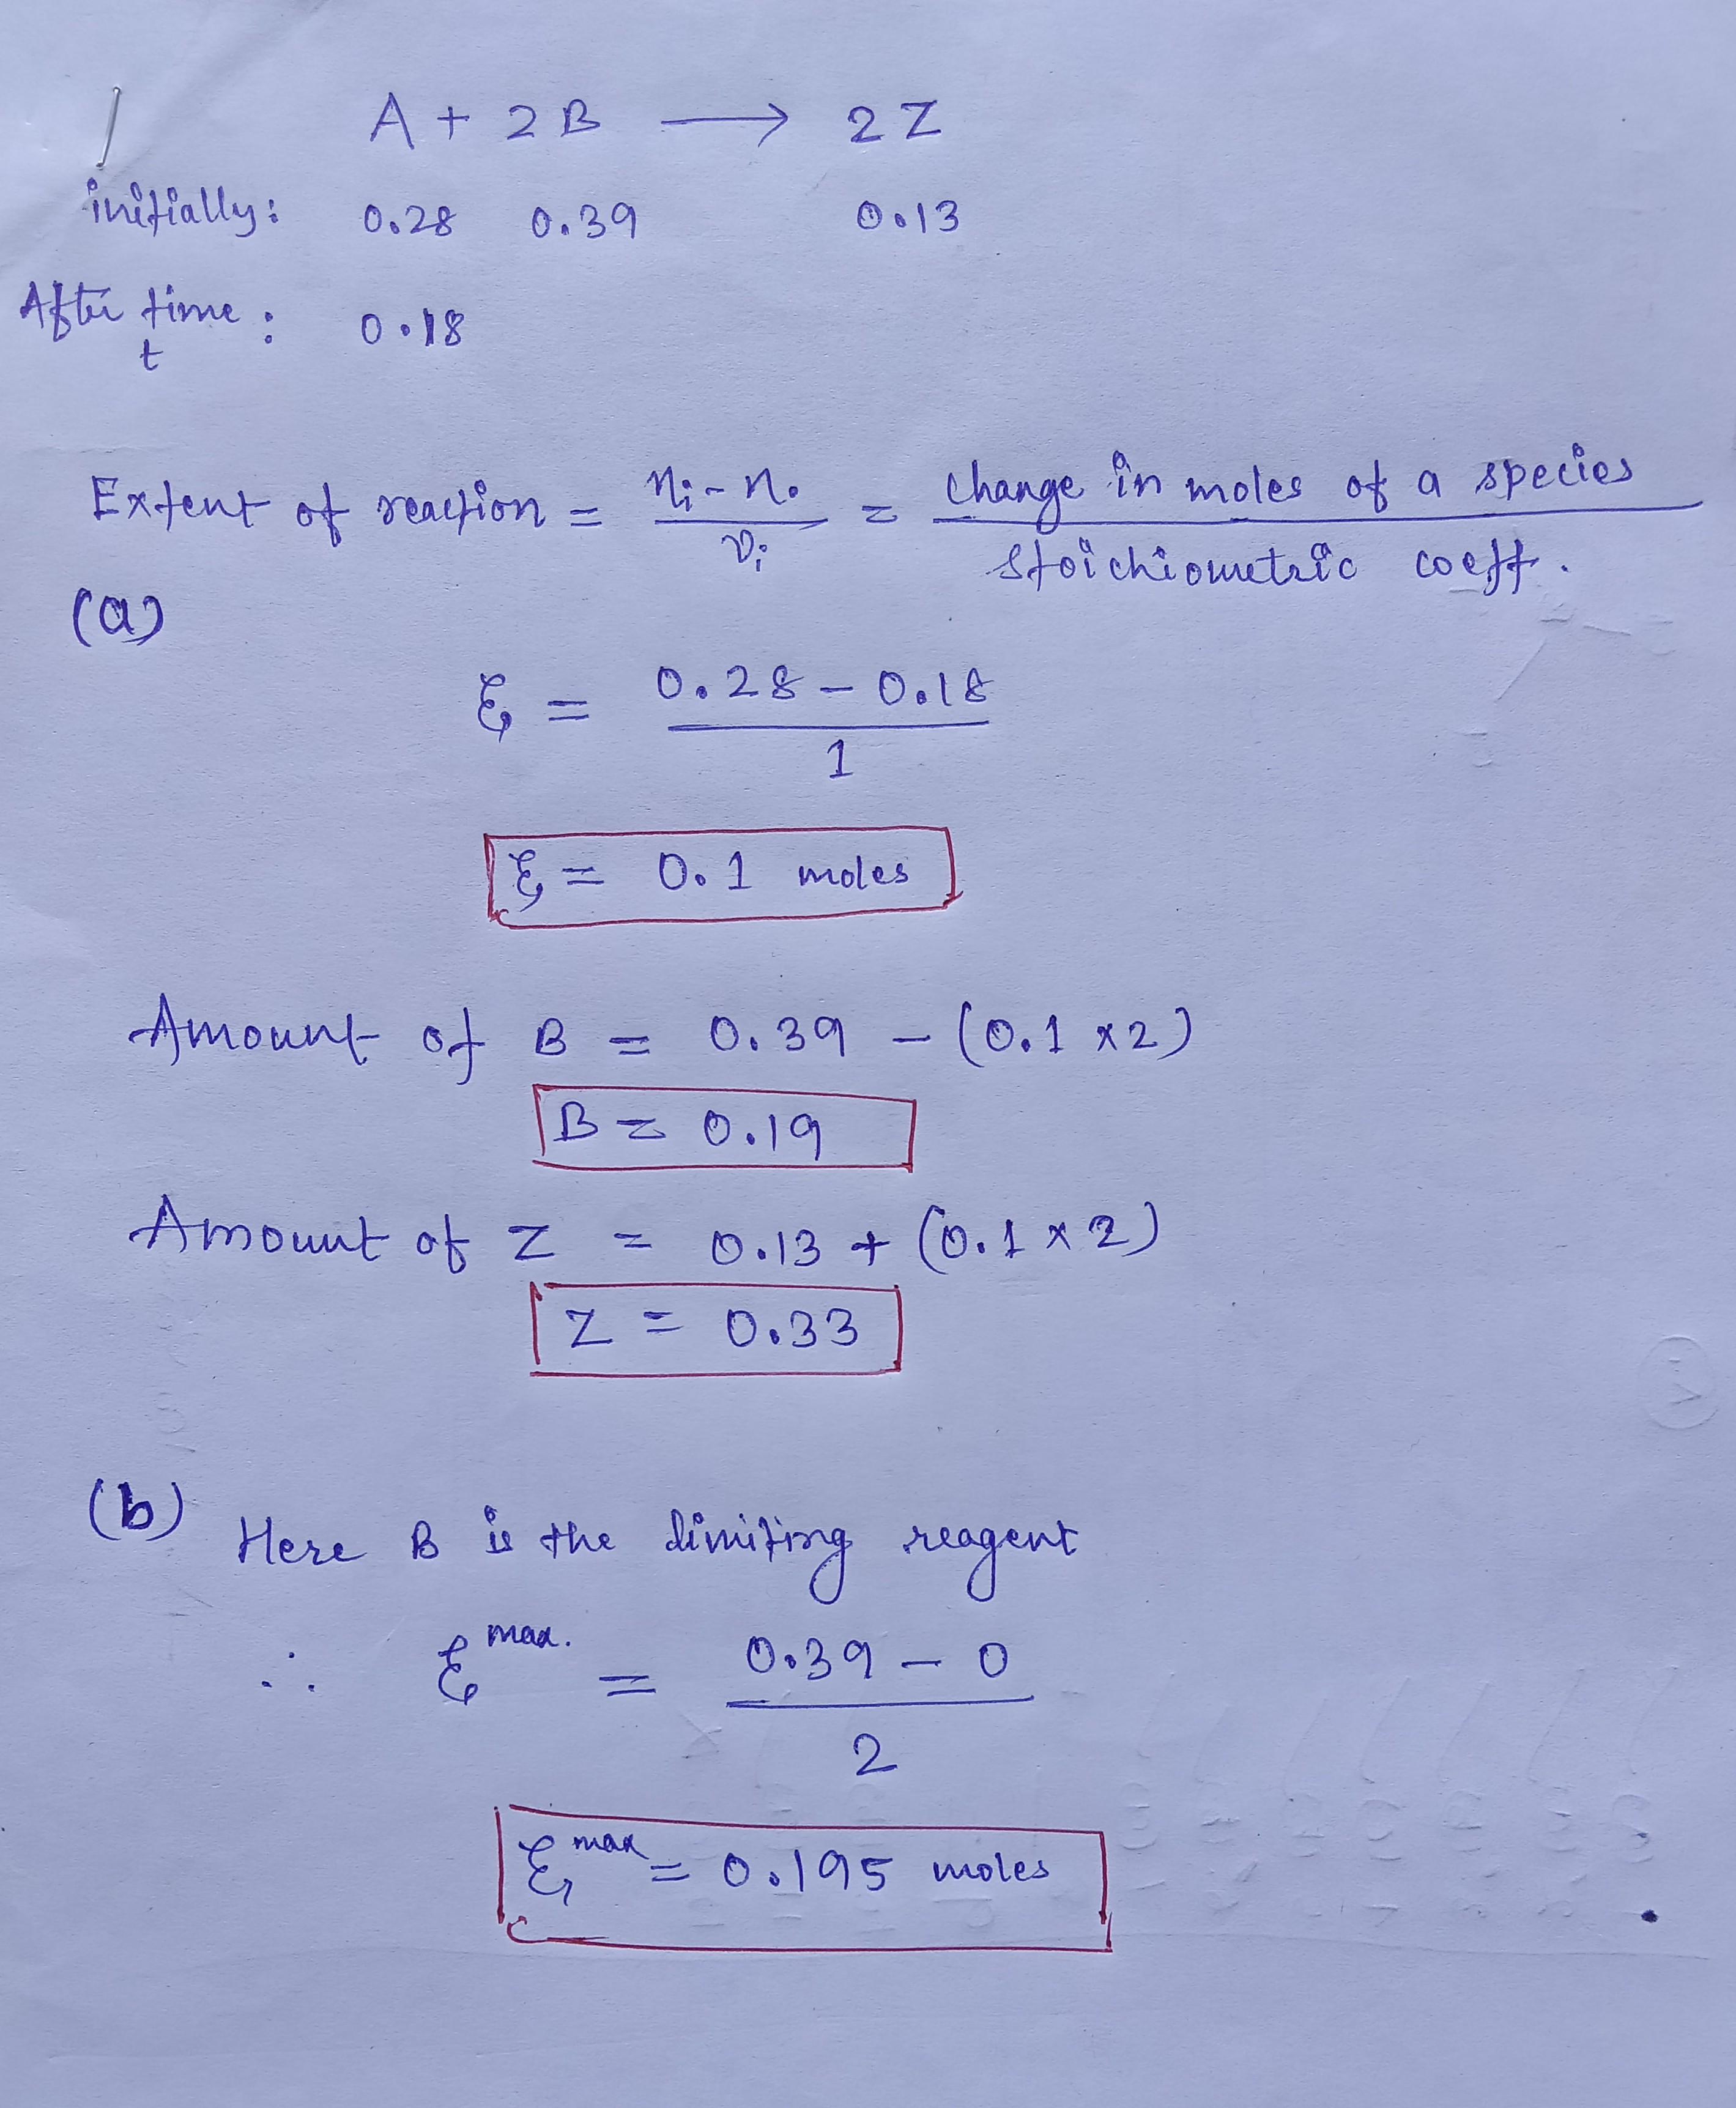 A + 2B ⟶ 2Z
initially: 0.28 0.39 0.13
After time t : 0.18
Extent of reaction = (nᵢ - n₀)/νᵢ = change in moles of a species / stoichiometric coeff.
(a)
ξ = (0.28 - 0.18)/1
ξ = 0.1 moles
Amount of B = 0.39 - (0.1 × 2)
B = 0.19
Amount of Z = 0.13 + (0.1 × 2)
Z = 0.33
(b) Here B is the limiting reagent
∴ ξ max. = (0.39 - 0)/2
ξ max = 0.195 moles